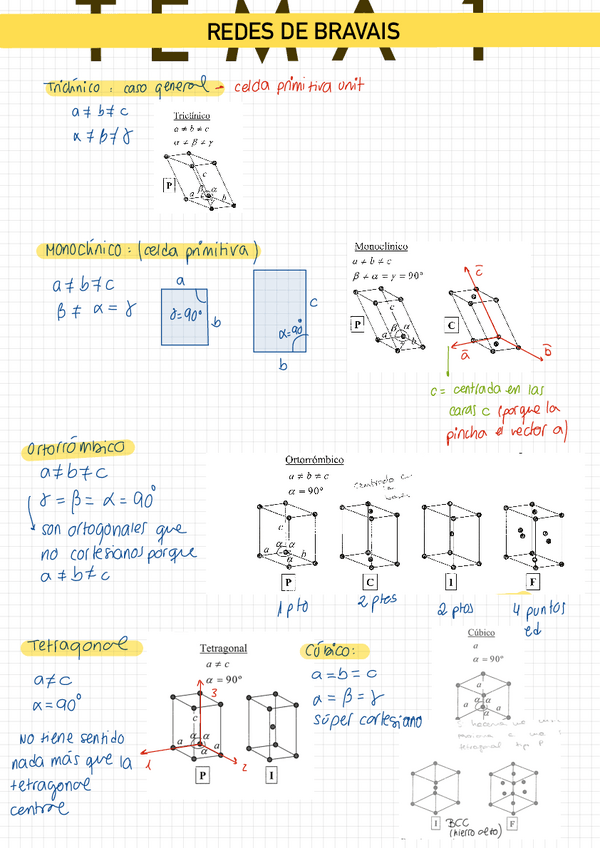 TEMA 1
REDES DE BRAVAIS
Triclínico : caso general → celda primitiva unit
a ≠ b ≠ c
α ≠ β ≠ γ
Triclínico
a ≠ b ≠ c
α ≠ β ≠ γ
c
β α
a γ b
P
Monoclínico : (celda primitiva)
a ≠ b ≠ c
β ≠ α = γ
a
γ = 90°
b
c
α = 90°
b
Monoclínico
a ≠ b ≠ c
β ≠ α = γ = 90°
c
a β α
γ b
P
C
c
a
b
c = centrada en las
caras c (porque la
pincha el vector a)
Ortorrómbico
a ≠ b ≠ c
γ = β = α = 90°
son ortogonales que
no cartesianos porque
a ≠ b ≠ c
Ortorrómbico
a ≠ b ≠ c
α = 90°
Centrada
c
α α
a α b
P
C
I
F
1 pto
2 ptos
2 ptos
4 puntos
ed
Tetragonal
a ≠ c
α = 90°
No tiene sentido
nada más que la
tetragonal
central
Tetragonal
a ≠ c
α = 90°
3
c
α α
a α a
1
2
P
I
Cúbico:
a = b = c
α = β = γ
súper cartesiano
Cúbico
a
α = 90°
a
α α
a α a
tetragonal tip P
I
BCC
(hierro alto)
F